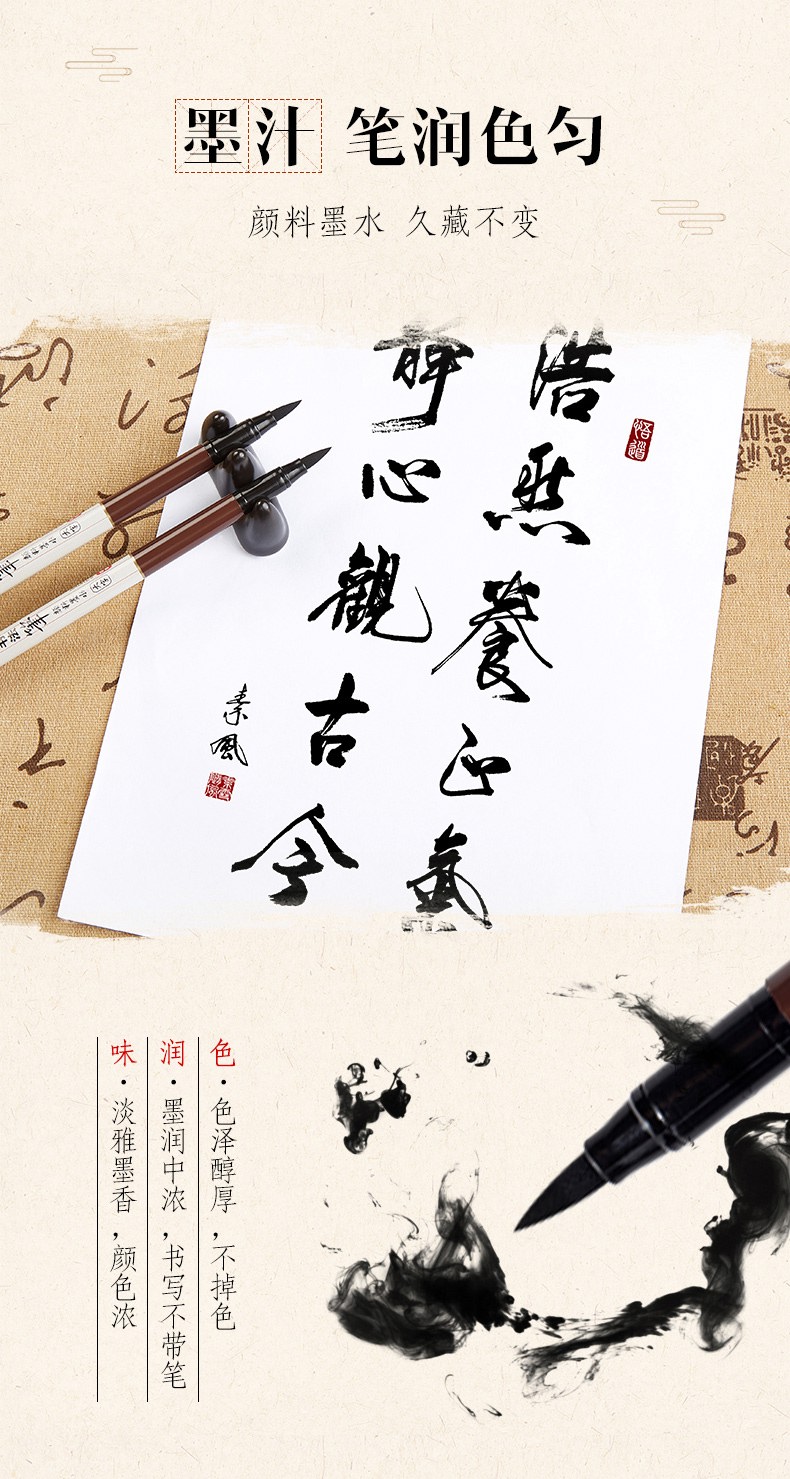 墨汁 笔润色匀
颜料墨水 久藏不变
悟道
浩然养正氣
静心觀古今
秉風
色·色泽醇厚,不掉色
润·墨润中浓,书写不带笔
味·淡雅墨香,颜色浓